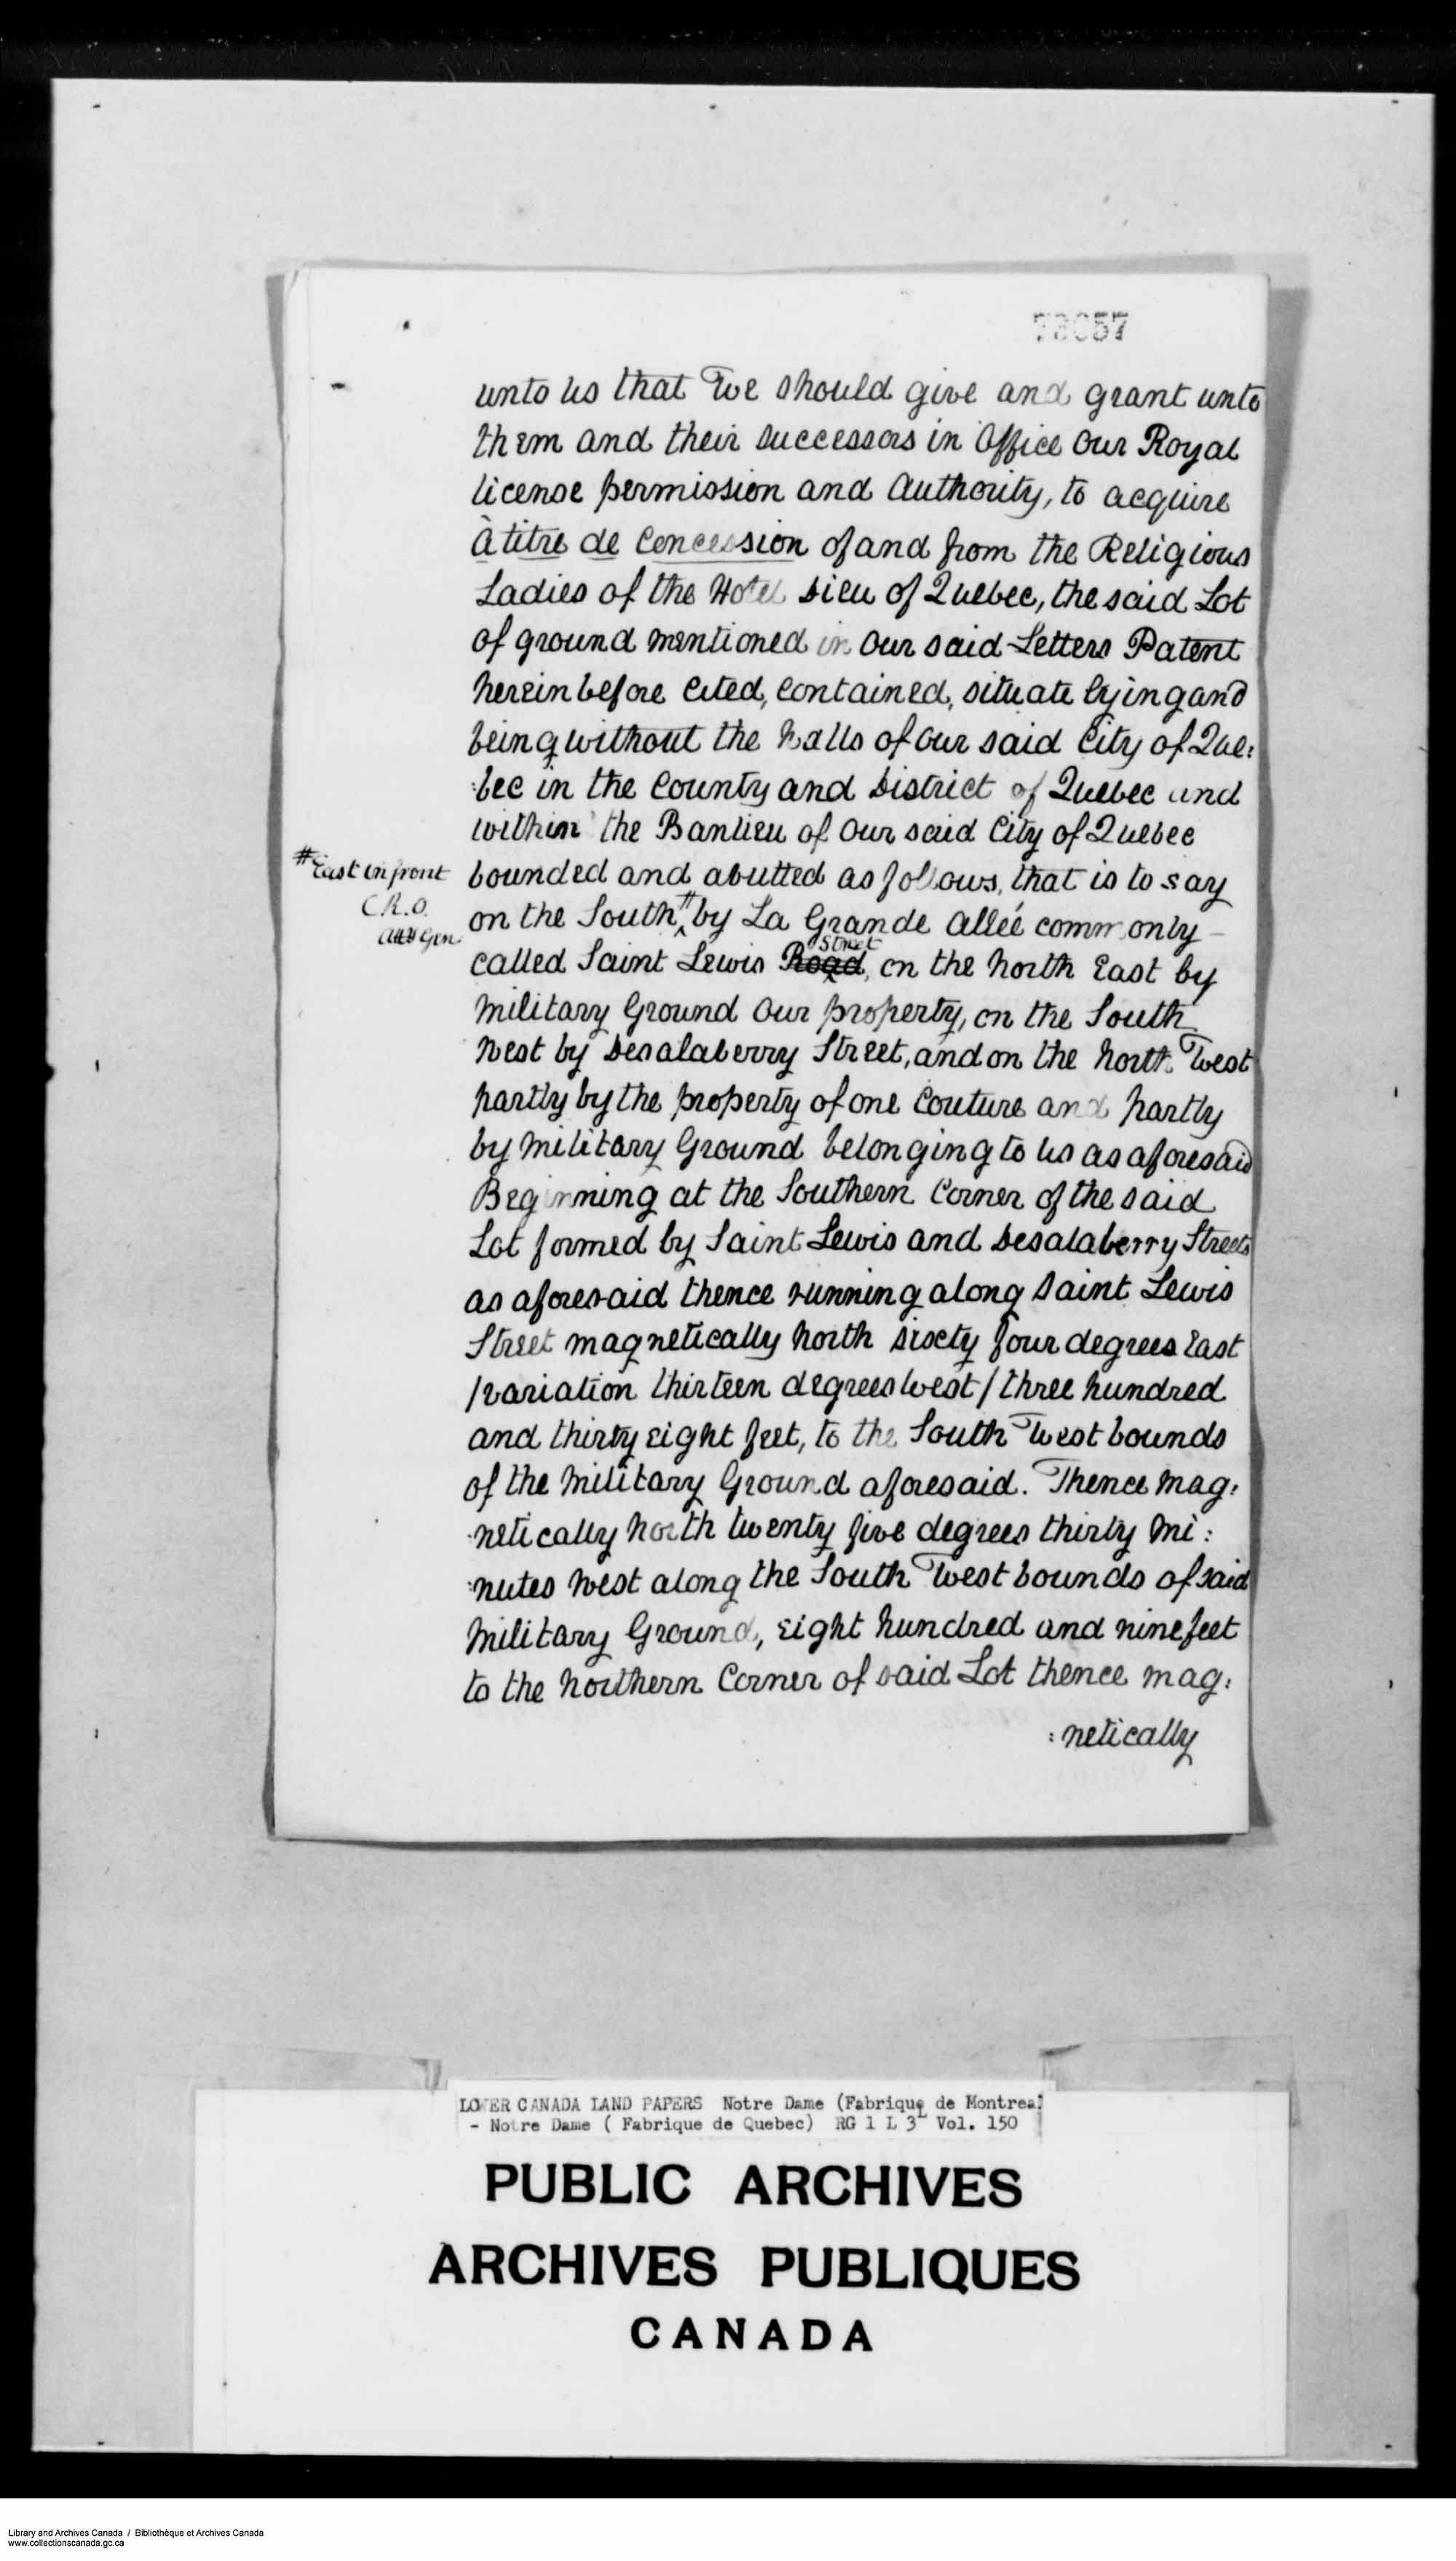 73057
unto us that We should give and grant unto
them and their successors in Office Our Royal
license permission and Authority, to acquire
à titre de Concession of and from the Religious
Ladies of the Hotel Dieu of Quebec, the said Lot
of ground mentioned in Our said Letters Patent
herein before Cited, Contained, situate lying and
being without the Walls of Our said City of Que:
:bec in the County and District of Quebec and
within the Banlieu of Our said City of Quebec
bounded and abutted as follows, that is to say
# East in front
C.R.O.
Atty Gen.
on the South # by La Grande Alleé commonly
called Saint Lewis Road Street, on the North East by
Military Ground Our property, on the South
West by Desalaberry Street, and on the North West
partly by the property of one Couture and partly
by Military Ground belonging to us as aforesaid
Beginning at the Southern Corner of the said
Lot formed by Saint Lewis and Desalaberry Streets
as aforesaid thence running along Saint Lewis
Street magnetically North sixty four degrees East
/variation thirteen degrees West/ three hundred
and thirty eight feet, to the South West bounds
of the Military Ground aforesaid. Thence Mag:
:netically North twenty five degrees thirty Mi:
:nutes West along the South West bounds of said
Military Ground, Eight hundred and nine feet
to the Northern Corner of said Lot thence Mag:
:netically
LOWER CANADA LAND PAPERS Notre Dame (Fabrique de Montreal
- Notre Dame ( Fabrique de Quebec) RG 1 L 3L Vol. 150
PUBLIC ARCHIVES
ARCHIVES PUBLIQUES
CANADA
Library and Archives Canada / Bibliothèque et Archives Canada
www.collectionscanada.gc.ca